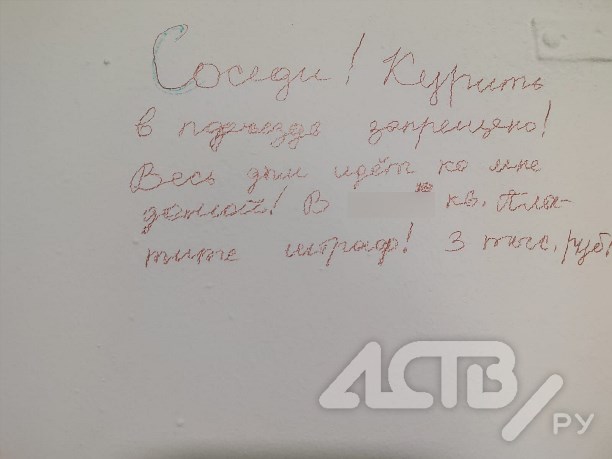 Соседи! Курить
в подъезде запрещено!
Весь дым идёт ко мне
домой! В кв. Пла-
тите штраф! 3 тыс. руб.
АСТВ.РУ